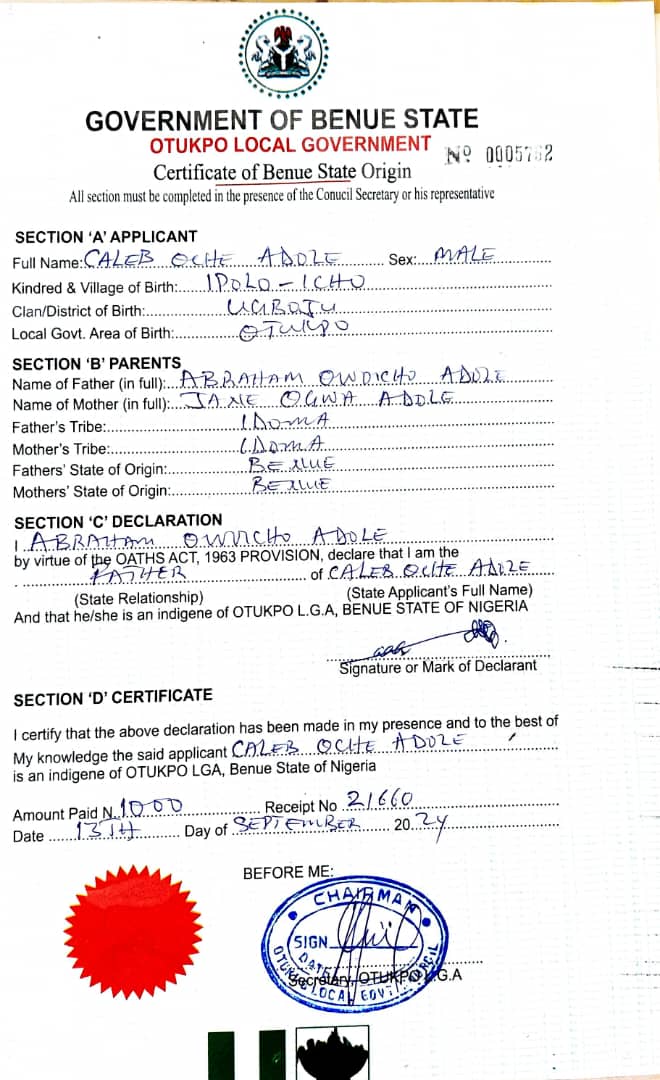 GOVERNMENT OF BENUE STATE
OTUKPO LOCAL GOVERNMENT
Certificate of Benue State Origin
Nº 0005752
All section must be completed in the presence of the Conucil Secretary or his representative
SECTION ‘A’ APPLICANT
Full Name: CALEB OCHE ADOLE Sex: MALE
Kindred & Village of Birth: IPOLO - ICHO
Clan/District of Birth: UGBOJU
Local Govt. Area of Birth: OTUKPO
SECTION ‘B’ PARENTS
Name of Father (in full): ABRAHAM OWOICHO ADOLE
Name of Mother (in full): JANE OGWA ADOLE
Father's Tribe: IDOMA
Mother's Tribe: IDOMA
Fathers' State of Origin: BENUE
Mothers' State of Origin: BENUE
SECTION ‘C’ DECLARATION
I ABRAHAM OWOICHO ADOLE
by virtue of the OATHS ACT, 1963 PROVISION, declare that I am the
FATHER of CALEB OCHE ADOLE
(State Relationship) (State Applicant's Full Name)
And that he/she is an indigene of OTUKPO L.G.A, BENUE STATE OF NIGERIA
Signature or Mark of Declarant
SECTION ‘D’ CERTIFICATE
I certify that the above declaration has been made in my presence and to the best of
My knowledge the said applicant CALEB OCHE ADOLE
is an indigene of OTUKPO LGA, Benue State of Nigeria
Amount Paid N 1000 Receipt No 21660
Date 13TH Day of SEPTEMBER 2024
BEFORE ME:
CHAIRMAN
SIGN
DATE
OTUKPO LOCAL GOVT. COUNCIL
Secretary, OTUKPO L.G.A